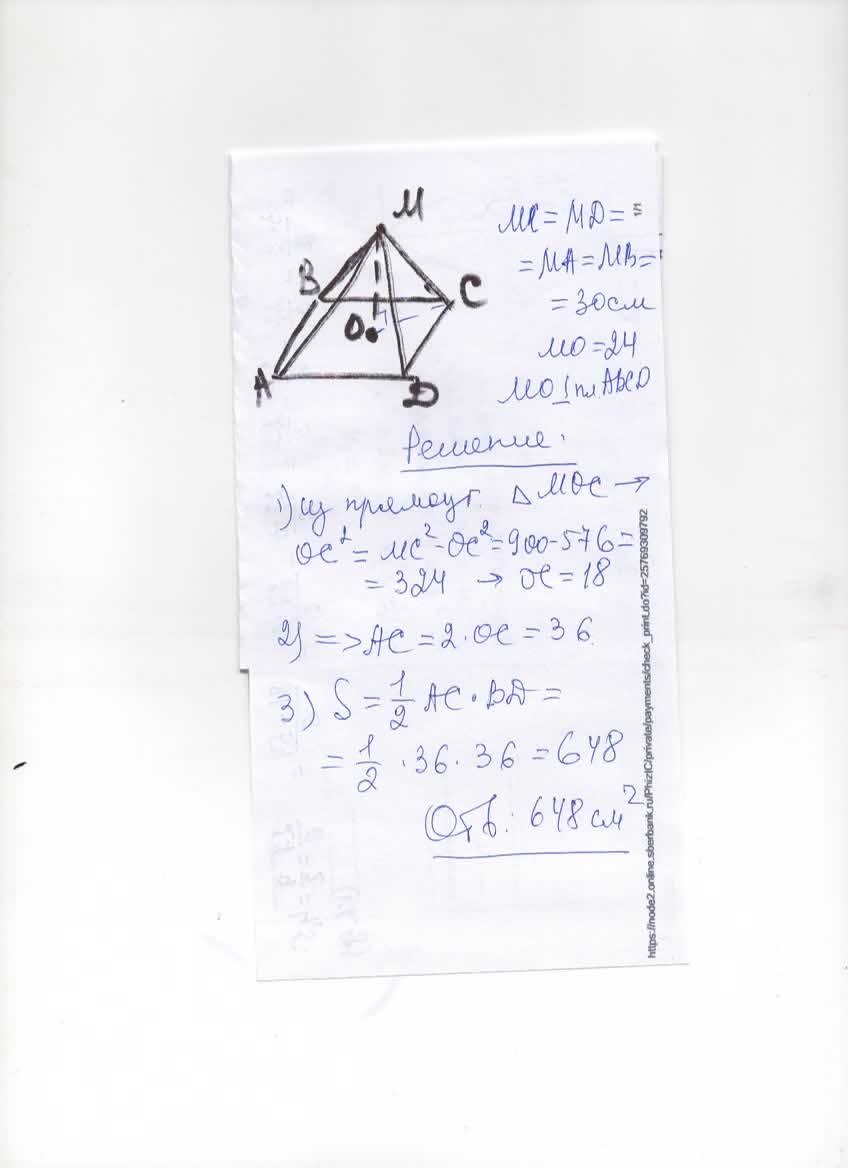 М
B
C
O
A
D
МС = МD =
= МА = МВ =
= 30см
МО = 24
МО ⊥ пл. ABCD
Решение:
1) из прямоуг. △ МОС →
ОС² = МС² - ОС² = 900 - 576 =
= 324 → ОС = 18
2) => АС = 2 · ОС = 36
3) S = 1/2 AC · BD =
= 1/2 · 36 · 36 = 648
Отв: 648 см²
1/1
https://node2.online.sberbank.ru/PhizIC/private/payments/check_print.do?id=25769309792